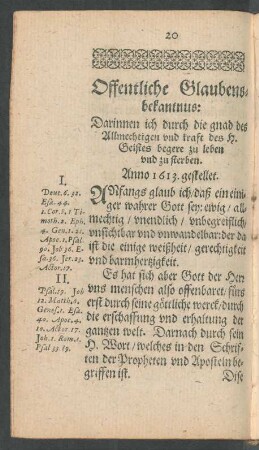 20
Offentliche Glaubens-
bekantnus:
Darinnen ich durch die gnad des
Allmechtigen vnd krafft des H.
Geistes begere zu leben
vnd zu sterben.
Anno 1613. gestellet.
I.
Deut. 6. 32.
Esa. 44.
1. Cor. 8. 1 Ti-
moth. 2. Eph.
4. Gen. 1. 21.
Apoc. 1. Psal.
90. Job 36. E-
sa. 36. Jer. 23.
Actor. 17.
ANfangs glaub ich / daß ein eini-
ger wahrer Gott sey: ewig / all-
mechtig / vnendlich / vnbegreiflich /
vnsichtbar vnd vnwandelbar: der da
ist die einige weißheit / gerechtigkeit
vnd barmhertzigkeit.
II.
Psal. 19. Job
12. Matth. 6.
Genes. 1. Esa.
40. Apoc. 4.
10. Actor. 17.
Joh. 1. Rom. 1.
Psal 33. 19.
Es hat sich aber Gott der Herr
vns menschen also offenbaret / fürs
erst durch seine göttliche werck / durch
die erschaffung vnd erhaltung der
gantzen welt. Darnach durch sein
H. Wort / welches in den Schrif-
ten der Propheten vnd Aposteln be-
griffen ist.
Dise